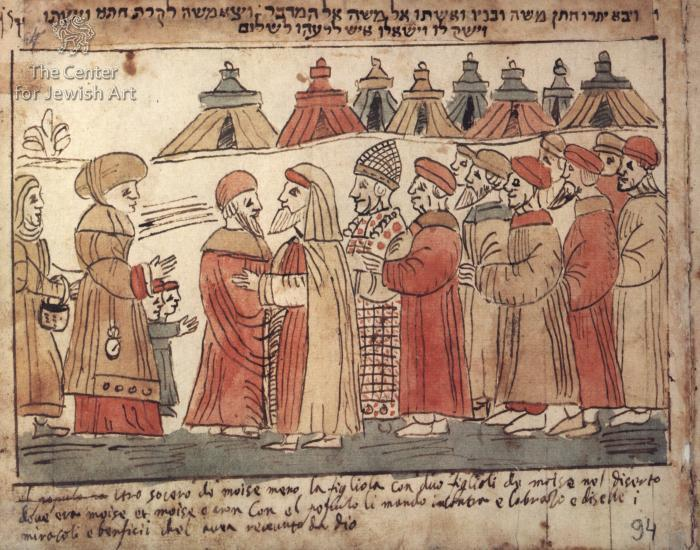 ויבא יתרו חתן משה ובניו ואשתו אל משה אל המדבר: ויצא משה לקרת חתנו
וישק לו וישאלו איש לרעהו לשלום
The Center
for Jewish Art
itro socero di moise meno la figliola con duo figlioli de moise nel diserto
dove era moise et moise e aron con el populo li mando incontra e labrazo e diseli i
miracoli e benficii chel avea recevuto da dio
94